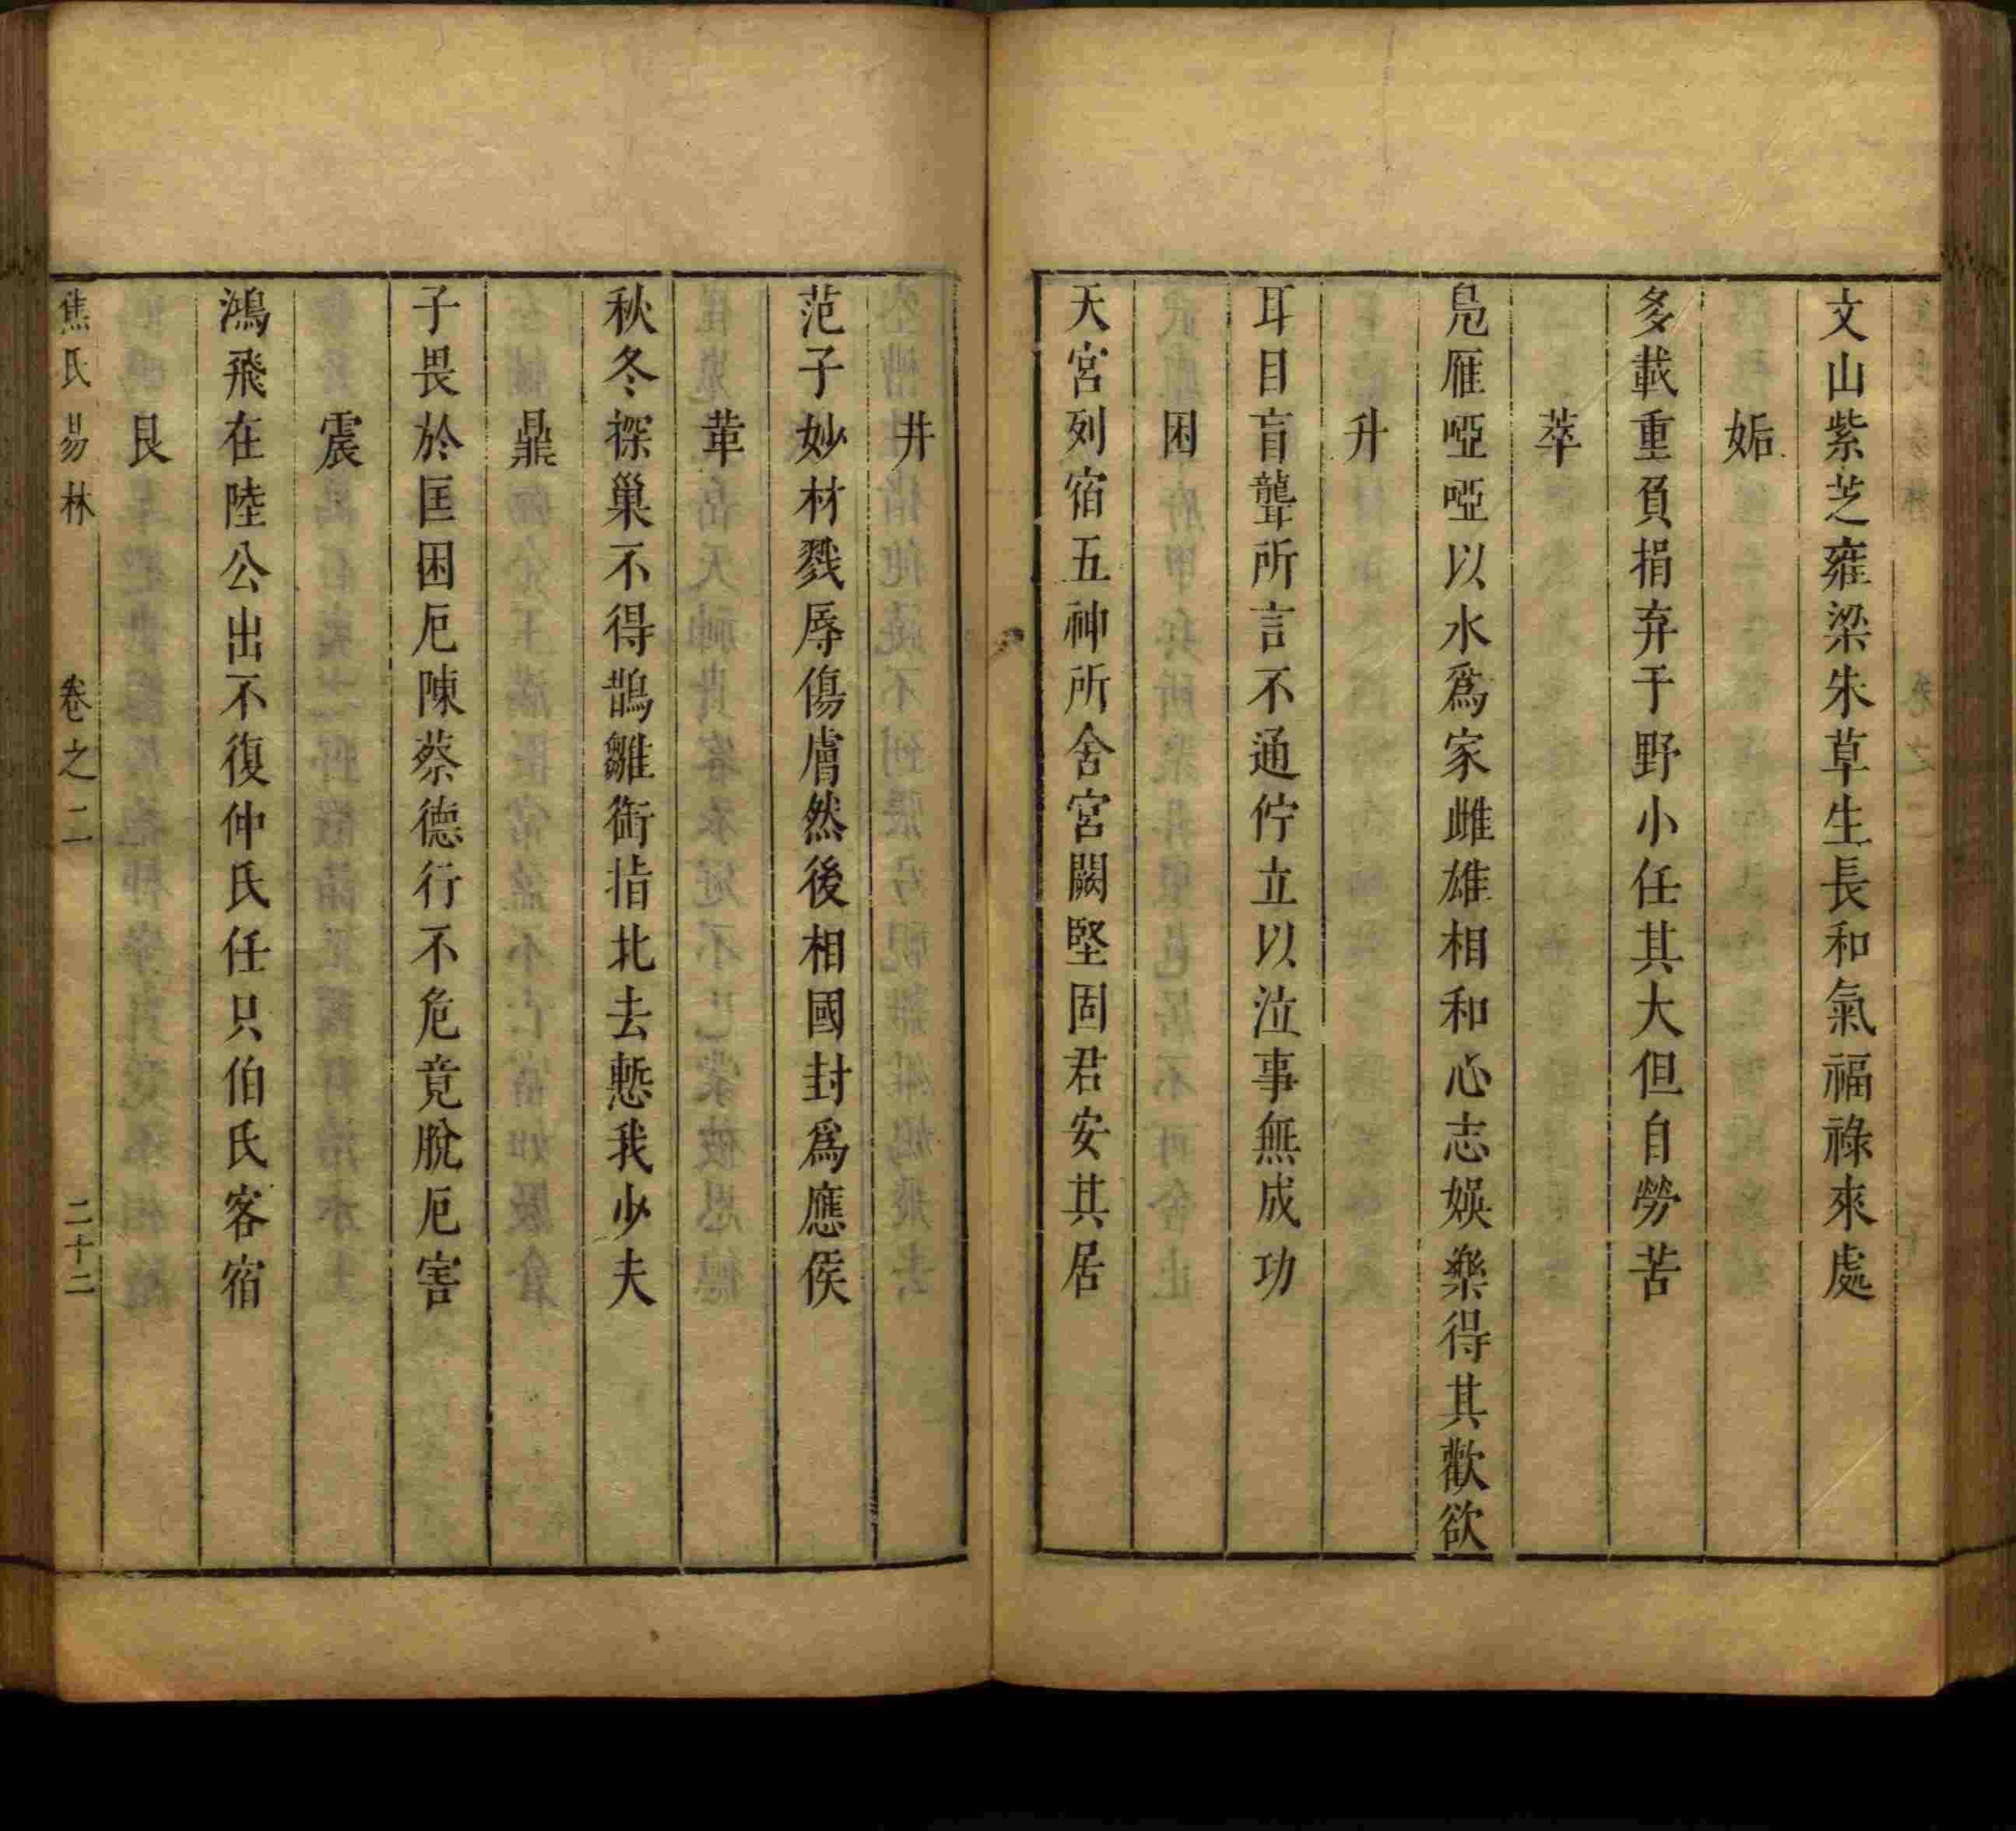 文山紫芝雍梁朱草生長和氣福祿來處
姤
多載重負捐弃于野小任其大但自勞苦
萃
鳬雁啞啞以水爲家雌雄相和心志娛樂得其歡欲
升
耳目盲聾所言不通佇立以泣事無成功
困
天宮列宿五神所舍宮闕堅固君安其居
井
范子妙材戮辱傷膚然後相國封爲應侯
革
秋冬探巢不得鵲雛銜指北去慙我少夫
鼎
子畏於匡困厄陳蔡德行不危竟脫厄害
震
鴻飛在陸公出不復仲氏任只伯氏客宿
艮
焦氏易林 卷之二 二十二